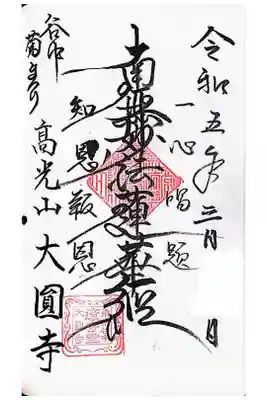 令和五年三月 日
一心唱題
南無妙法蓮華経
知恩報恩
谷中
菊まつり
高光山大圓寺